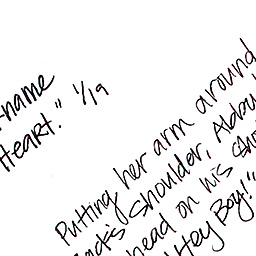 name
Heart." 1/19
Putting her arm around
shoulder,
head on his
"Hey Boy!"